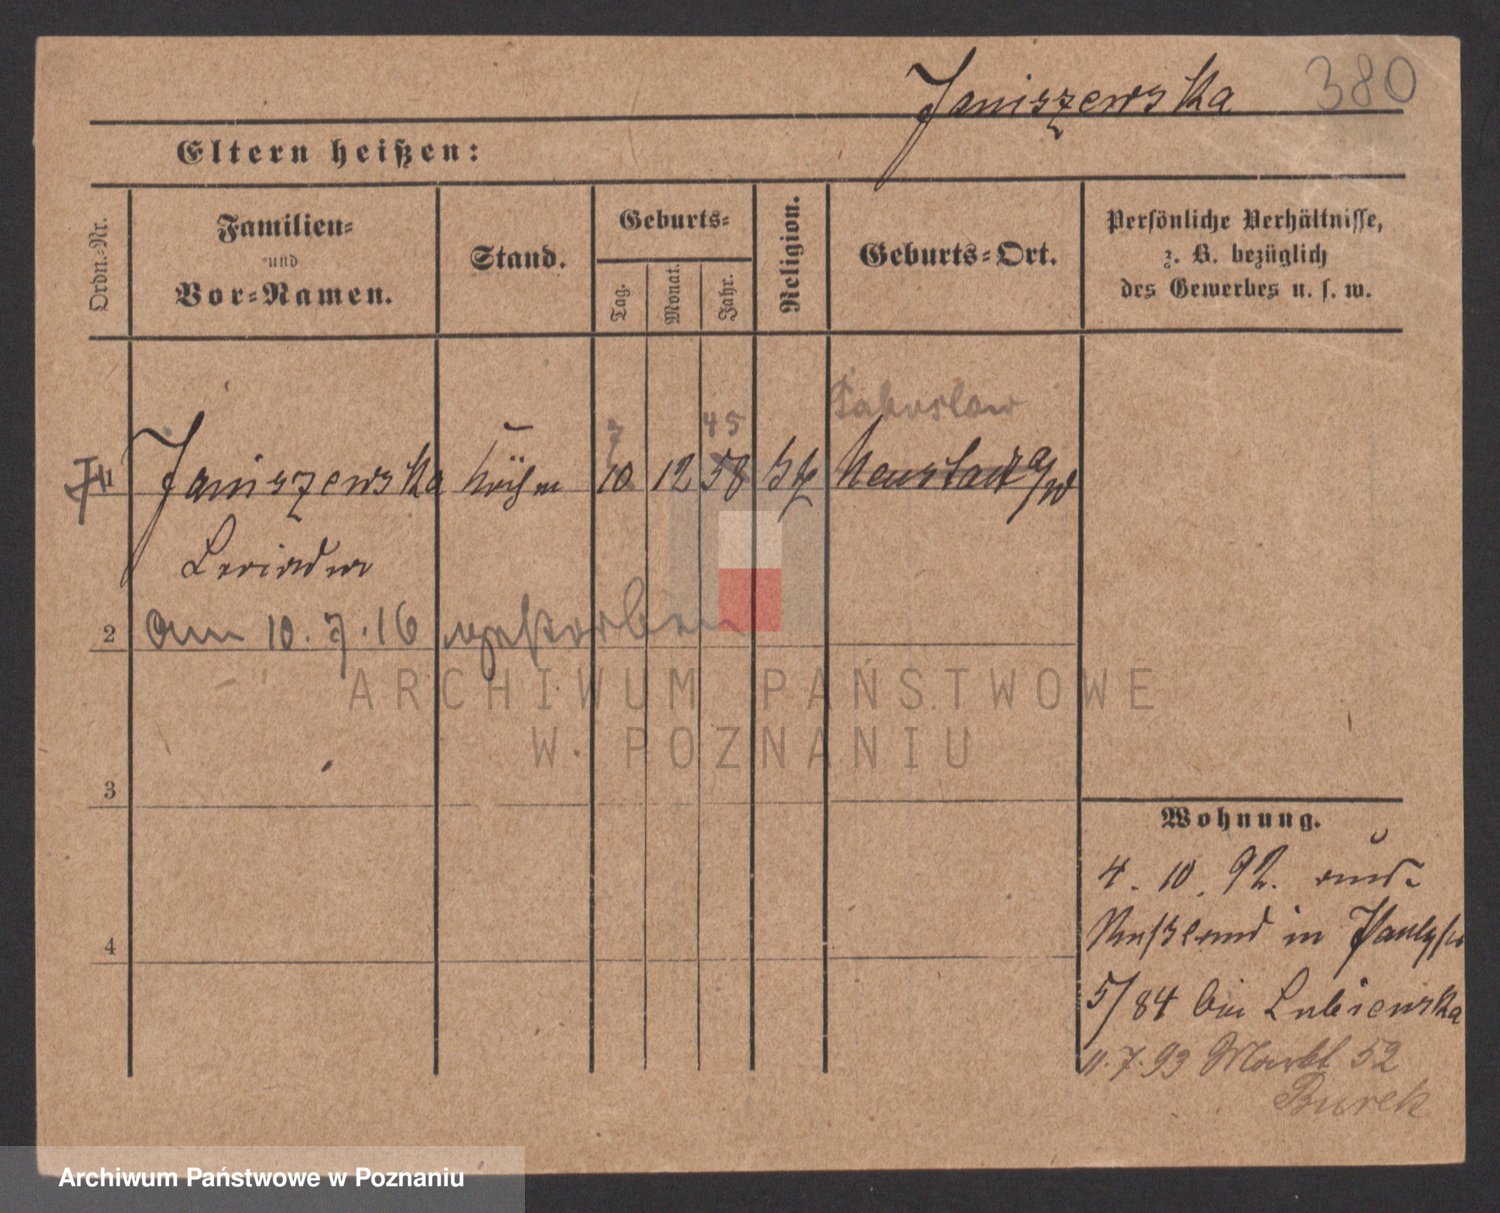 Janiszewska 380
Eltern heißen:
Ordn.-Nr.
Familien-
und
Vor-Namen.
Stand.
Geburts-
Tag.
Monat.
Jahr.
Religion.
Geburts-Ort.
Persönliche Verhältnisse,
z. B. bezüglich
des Gewerbes u. s. w.
7 45
1 Janiszewska 10 12 58 Neustadt a/W
2 Am 10. 7. 16 gestorben
ARCHIWUM PAŃSTWOWE
W POZNANIU
3
Wohnung.
4. 10. 92. aus
Rußland in
4
5/84 bei Lubienska
11. 7. 93 Markt 52
Burek
Archiwum Państwowe w Poznaniu